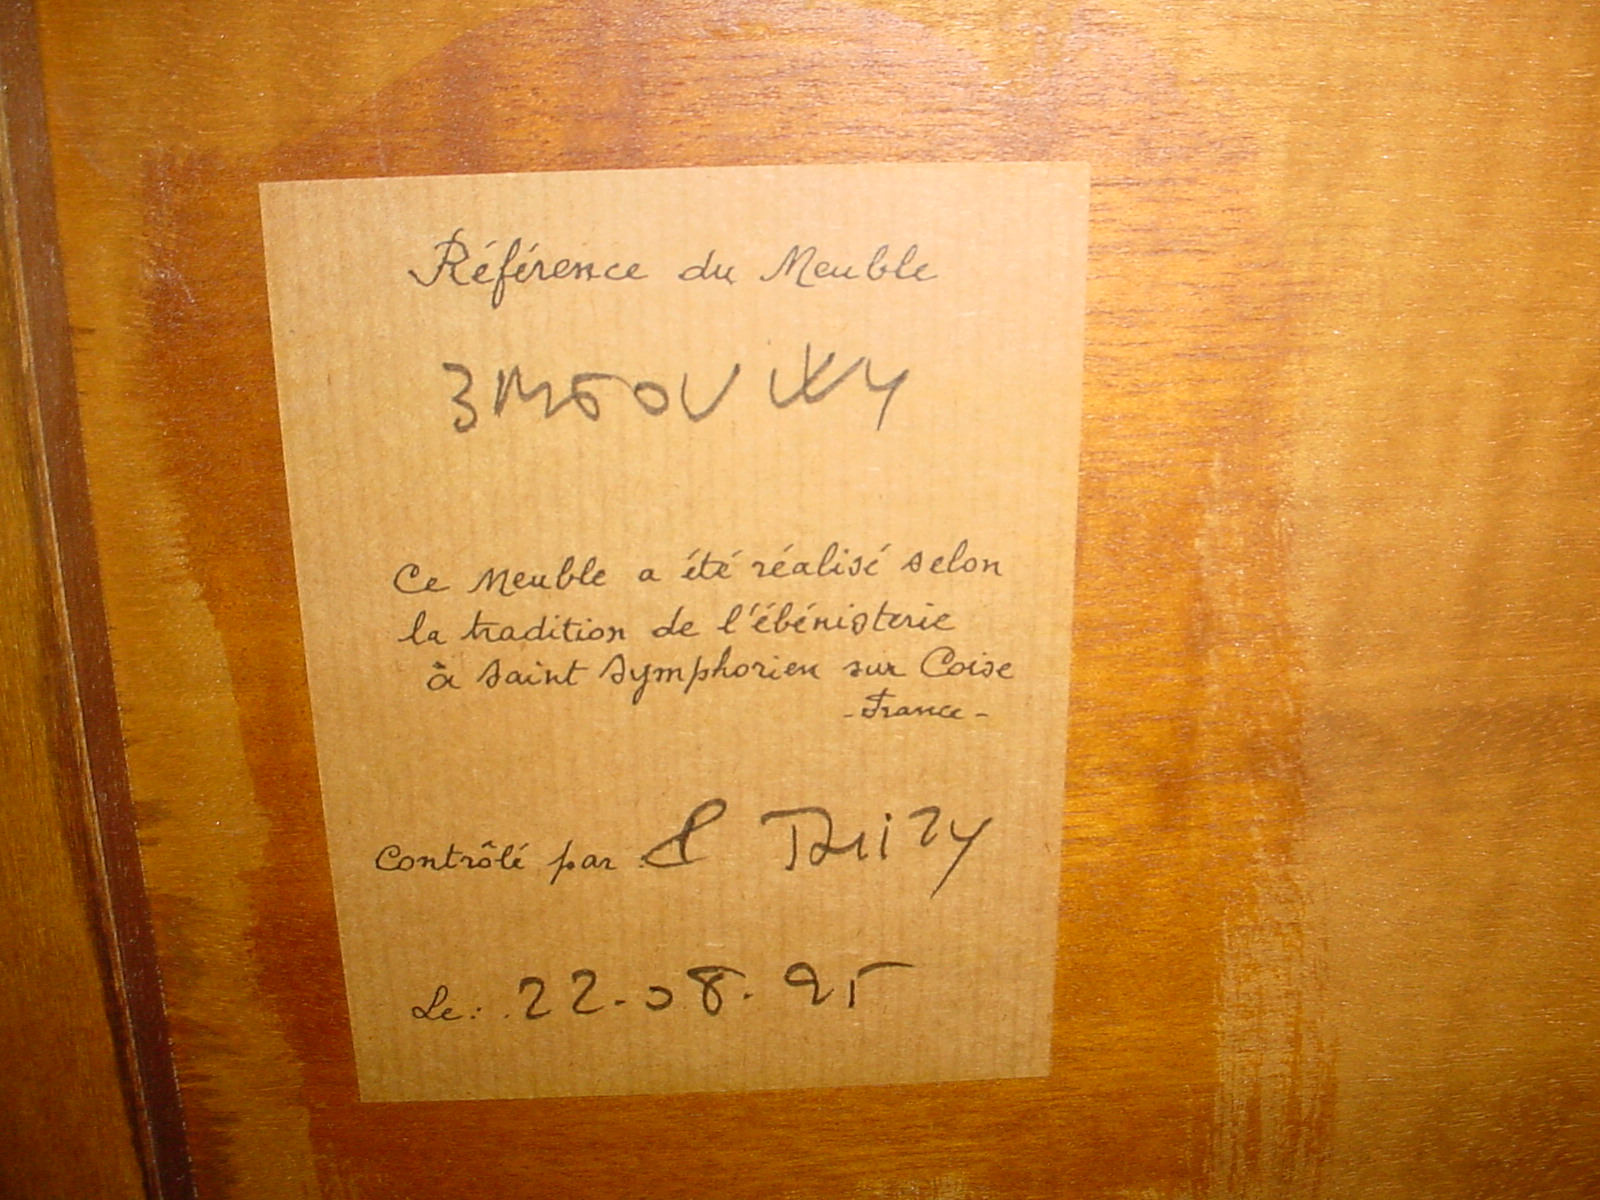 Référence du Meuble
Ce Meuble a été réalisé selon
la tradition de l'ébénisterie
à Saint Symphorien sur Coise
- France -
Contrôlé par
Le : 22.08.95